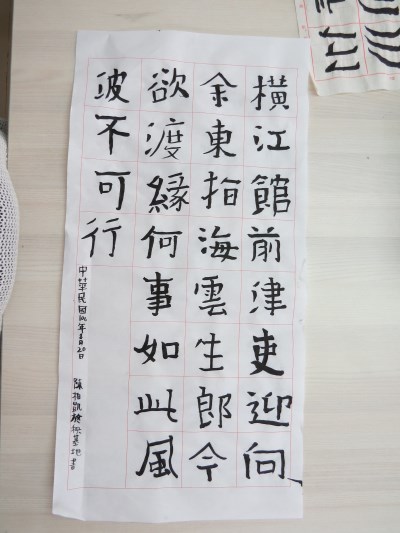 橫江館前津吏迎向
余東指海雲生郎今
欲渡緣何事如此風
波不可行
中華民國